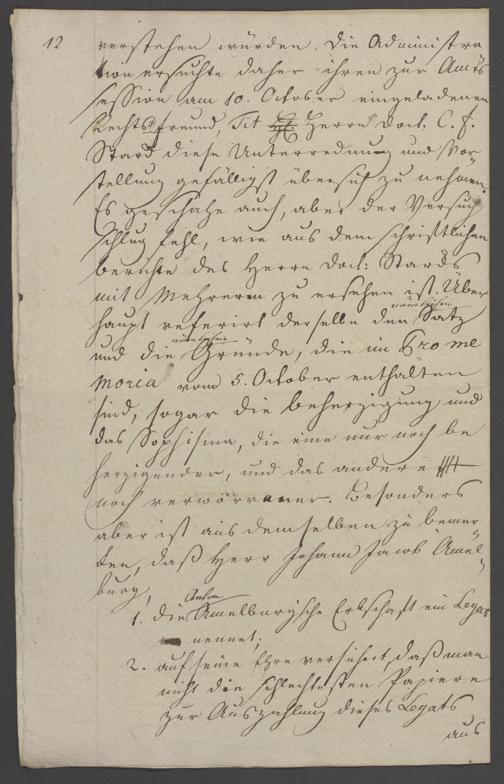 12
verstehen würden. Die Administra
tion ersuchte daher ihren zur Amts
session am 10. October eingeladenen
Rechtsfreund, Tit Herrn Doct. C. F.
Starck diese Unterredung und Vor
stellung gefälligst über sich zu nehmen.
Es geschahe auch, aber der Versuch
schlug fehl, wie aus dem schriftlichen
berichte des Herrn Doct: Starcks
mit Mehrerem zu ersehen ist. Über
haupt referirt derselbe den nämlichen Satz
und die nämlichen Gründe, die im Pro me
moria vom 5. October enthalten
sind, sogar die beherzigung und
das Sophisma, die eine nur noch be
herzigender, und das andere
noch verworrener. Besonders
aber ist aus demselben zu bemer
ken, daß Herr Johann Jacob Amel
burg,
1. die Anton Amelburgische Erbschaft ein Legat
nennet.
2. auf seine Ehre versichert, daß man
nicht die schlechtesten Papiere
zur Auszahlung dieses Legats
aus